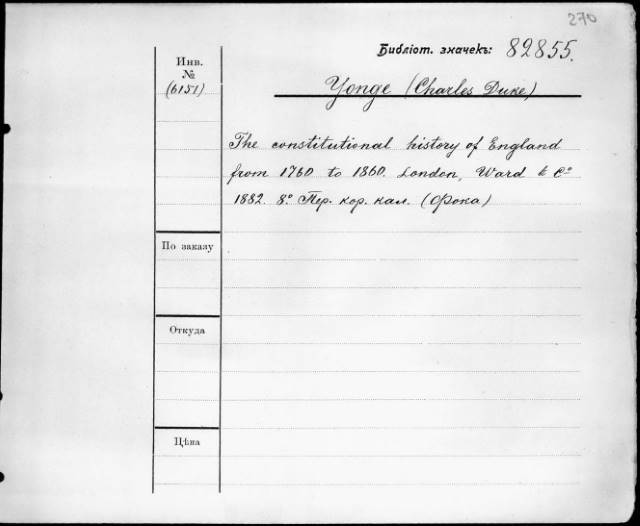 270
Библіот. значекъ: 82855.
Инв.
№
(6151)
Yonge (Charles Duke)
The constitutional history of England
from 1760 to 1860. London, Ward & Cº
1882. 8º. Пер. кор. кал. (Фока)
По заказу
Откуда
Цѣна